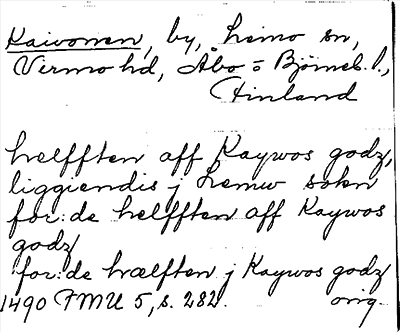 Kaivonen, by, Lemo sn,
Virmo hd, Åbo = Björneb. l.,
Finland
helfften aff Kaywos godz,
liggiendis j Lemw sokn
for:de helfften aff Kaywos
godz
for:de hælften j Kaywos godz
1490 FMU 5, s. 282. orig.